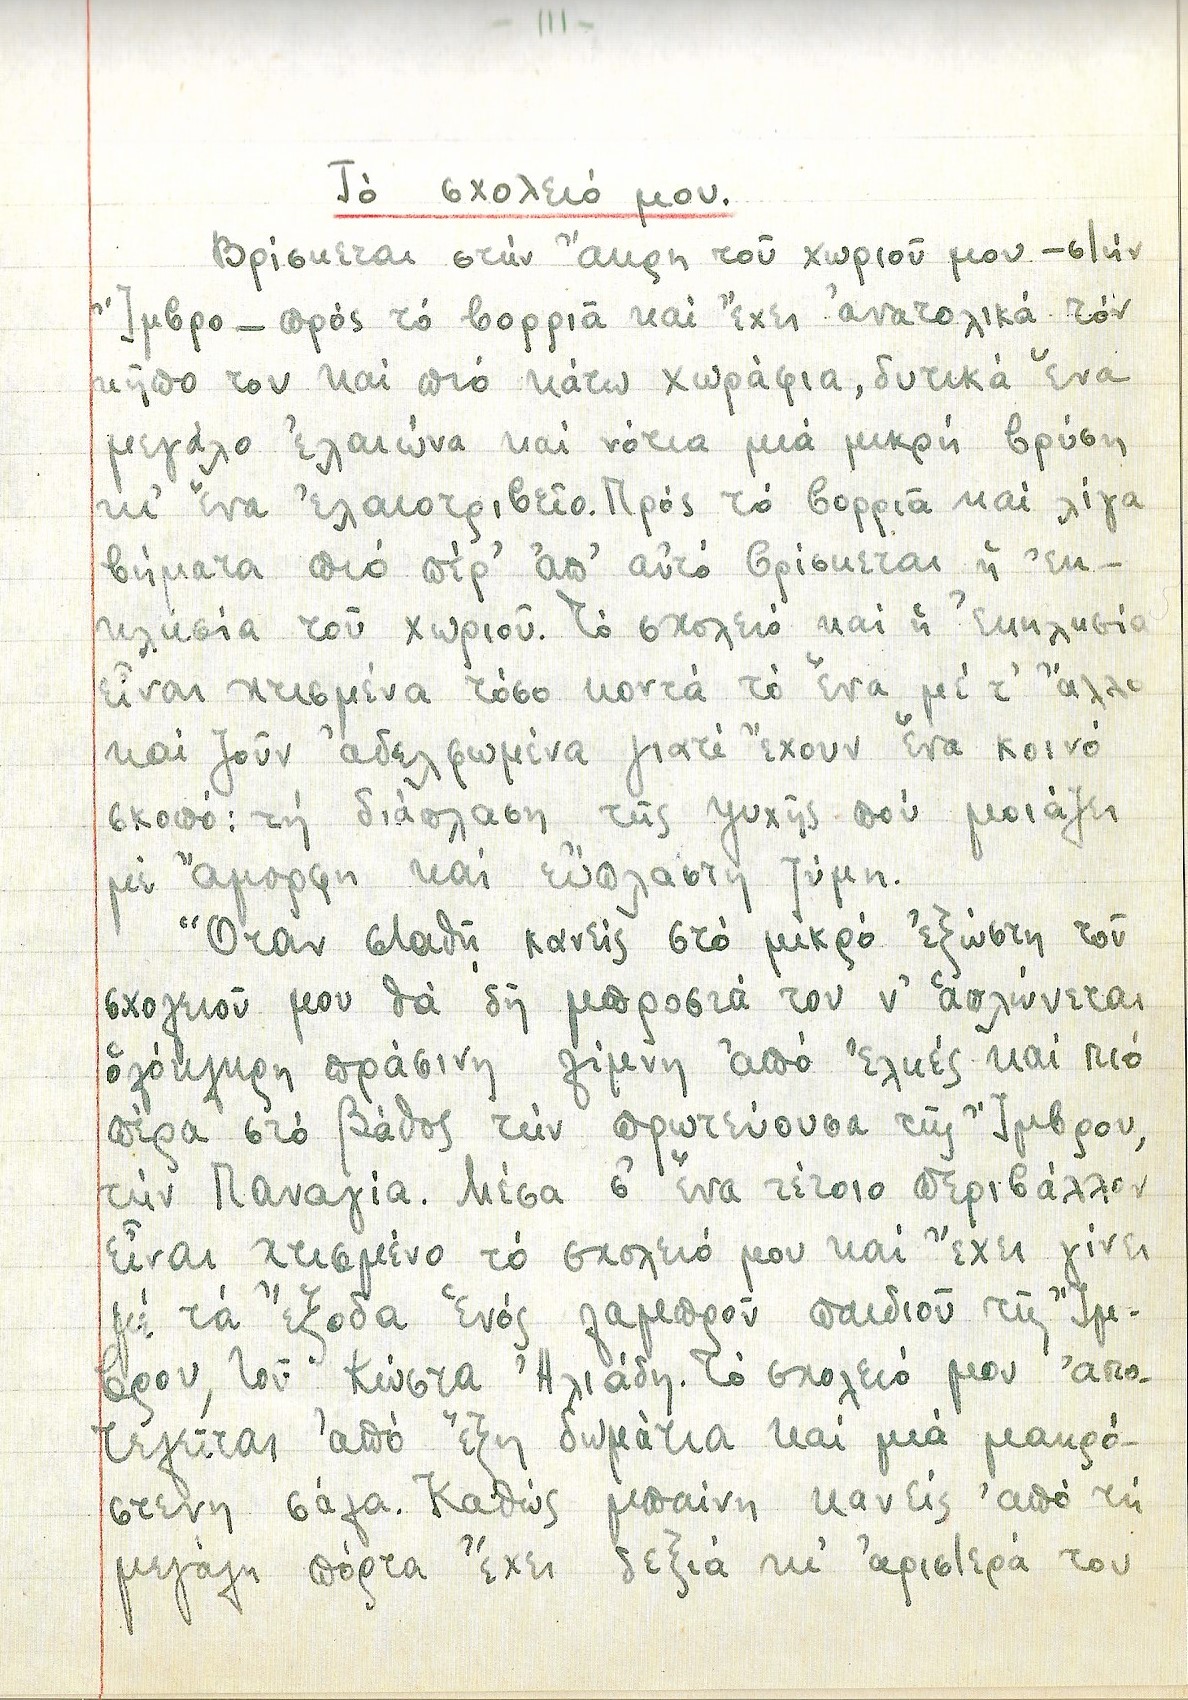 - 111 -
Τό σχολειό μου.
Βρίσκεται στήν ἄκρη τοῦ χωριοῦ μου – στήν
Ἴμβρο – πρός τό βορριᾶ καί ἔχει ἀνατολικά τόν
κῆπο του καί πιό κάτω χωράφια, δυτικά ἕνα
μεγάλο ἐλαιώνα καί νότια μιά μικρή βρύση
κι' ἕνα ἐλαιοτριβεῖο. Πρός τό βορριᾶ καί λίγα
βήματα πιό πέρ' ἀπ' αὐτό βρίσκεται ἡ ἐκ-
κλησία τοῦ χωριοῦ. Τό σχολειό καί ἡ ἐκκλησία
εἶναι χτισμένα τόσο κοντά τό ἕνα μέ τ' ἄλλο
καί ζοῦν ἀδελφωμένα γιατί ἔχουν ἕνα κοινό
σκοπό: τή διάπλαση τῆς ψυχῆς πού μοιάζει
μέ ἄμορφη καί εὔπλαστη ζύμη.
Ὅταν σταθῆ κανείς στό μικρό ἐξώστη τοῦ
σχολειοῦ μου θά δῆ μπροστά του ν' ἁπλώνεται
ὁλόκληρη πράσινη λίμνη ἀπό ἐλιές καί πιό
πέρα στό βάθος τήν πρωτεύουσα τῆς Ἴμβρου,
τήν Παναγία. Μέσα σ' ἕνα τέτοιο περιβάλλον
εἶναι χτισμένο τό σχολειό μου καί ἔχει γίνει
μέ τά ἔξοδα ἑνός λαμπροῦ παιδιοῦ τῆς Ἴμ-
βρου, τοῦ Κώστα Ἠλιάδη. Τό σχολειό μου ἀπο-
τελεῖται ἀπό ἕξη δωμάτια καί μιά μακρό-
στενη σάλα. Καθώς μπαίνη κανείς ἀπό τή
μεγάλη πόρτα ἔχει δεξιά κι' ἀριστερά του